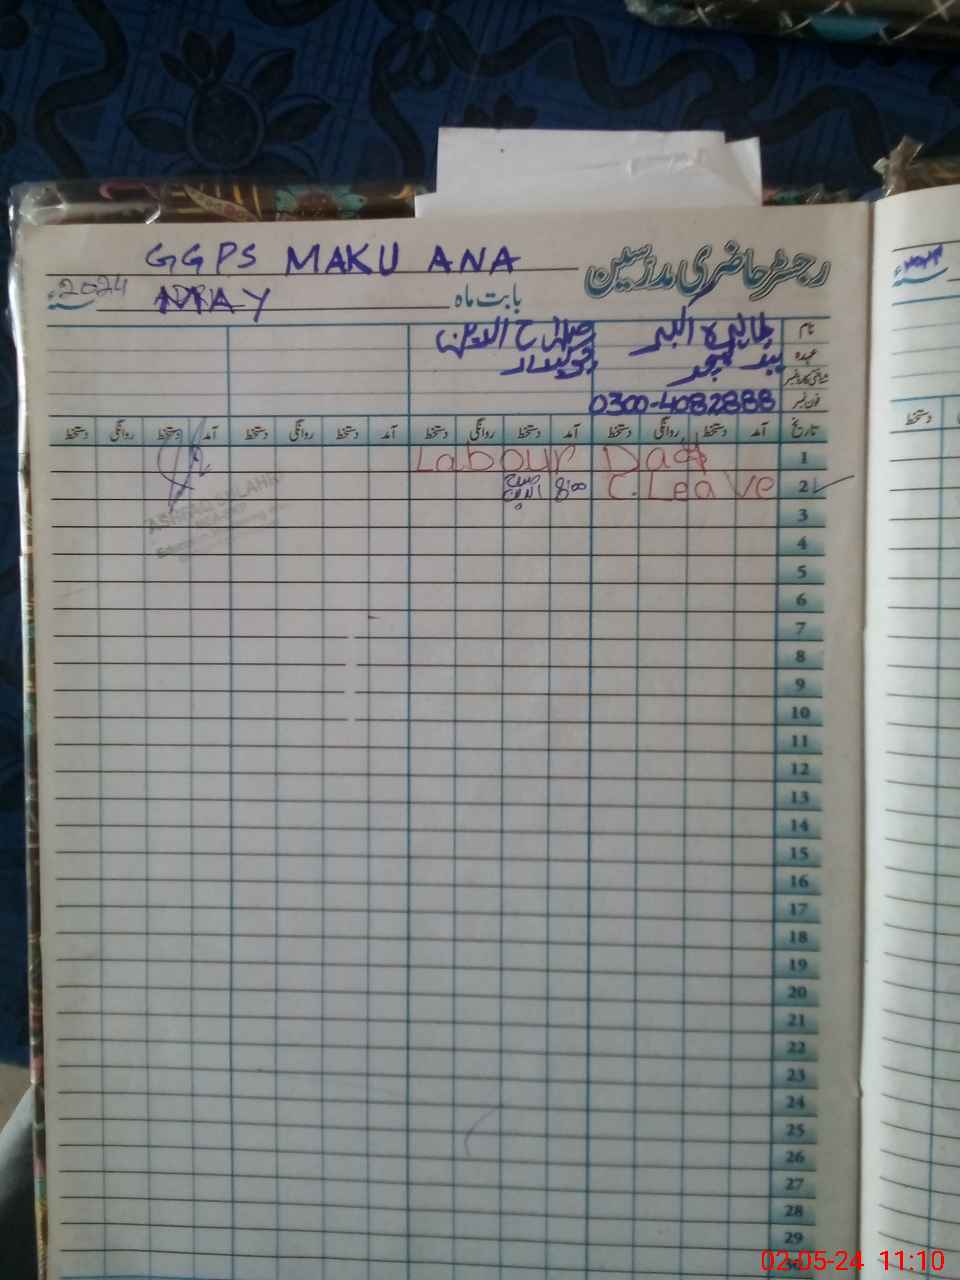 GGPS MAKU ANA
رجسٹر حاضری مدرسین
بابت ماہ MAY 2024ء
نام
عہدہ چوکیدار
شناختی کارڈ نمبر
فون نمبر 0300-4082888
تاریخ آمد دستخط روانگی دستخط آمد دستخط روانگی دستخط آمد دستخط روانگی دستخط آمد دستخط روانگی دستخط
1 Labour Day
2 C. Leave 8:00
3
4
5
6
7
8
9
10
11
12
13
14
15
16
17
18
19
20
21
22
23
24
25
26
27
28
29
30
دستخط
02-05-24 11:10